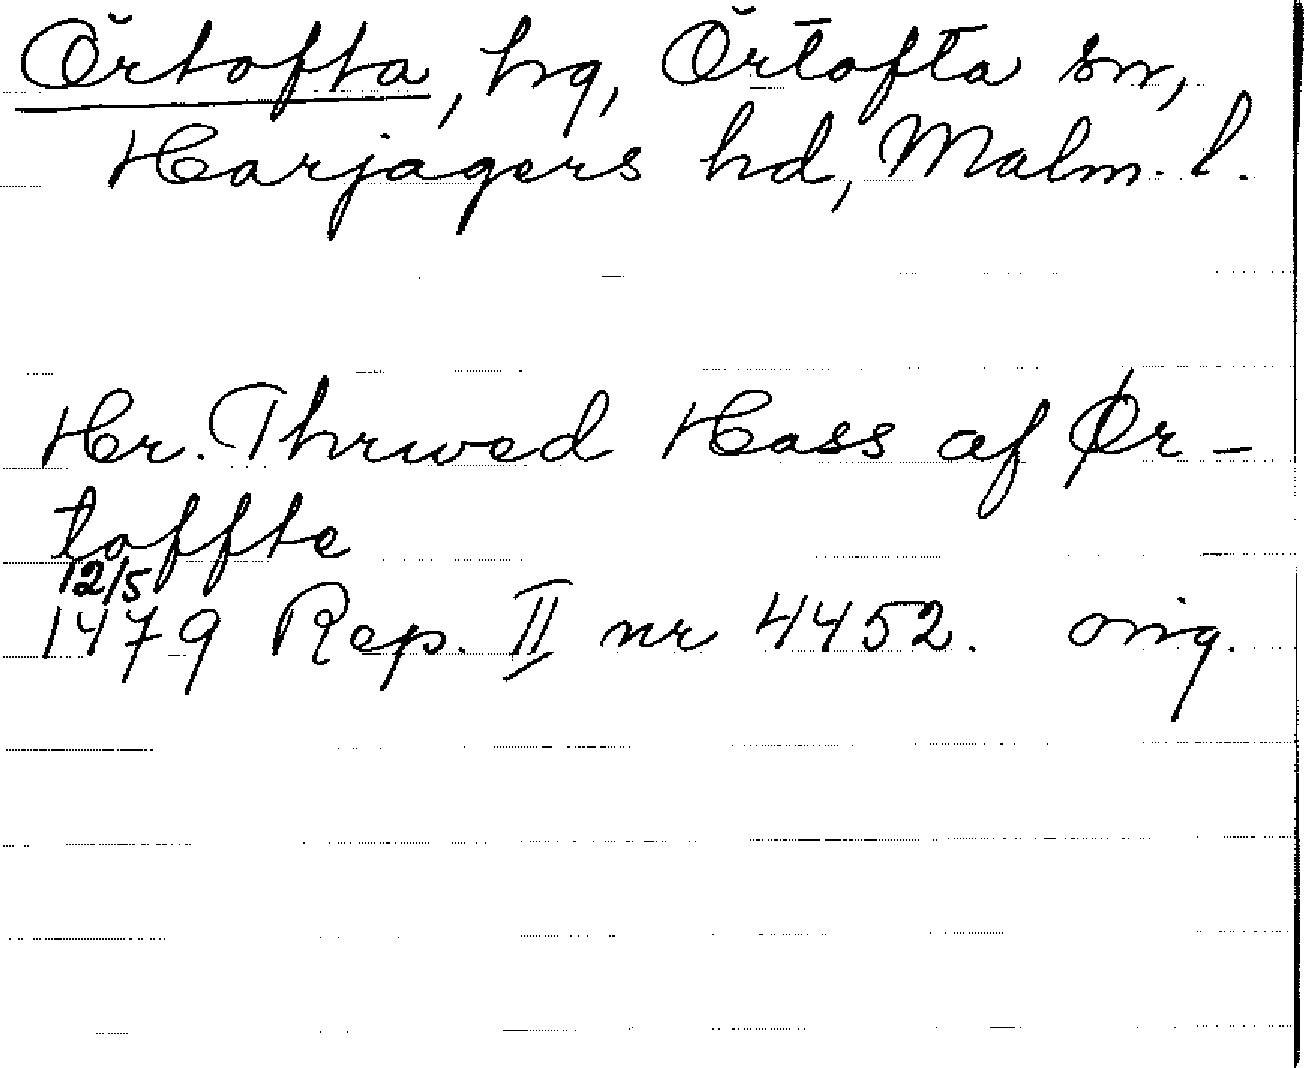 Örtofta, hg, Örtofta sn,
Harjagers hd, Malm. l.
Hr. Thrwed Hass af Ør-
toffte
12/5
1479 Rep. II nr 4452. orig.